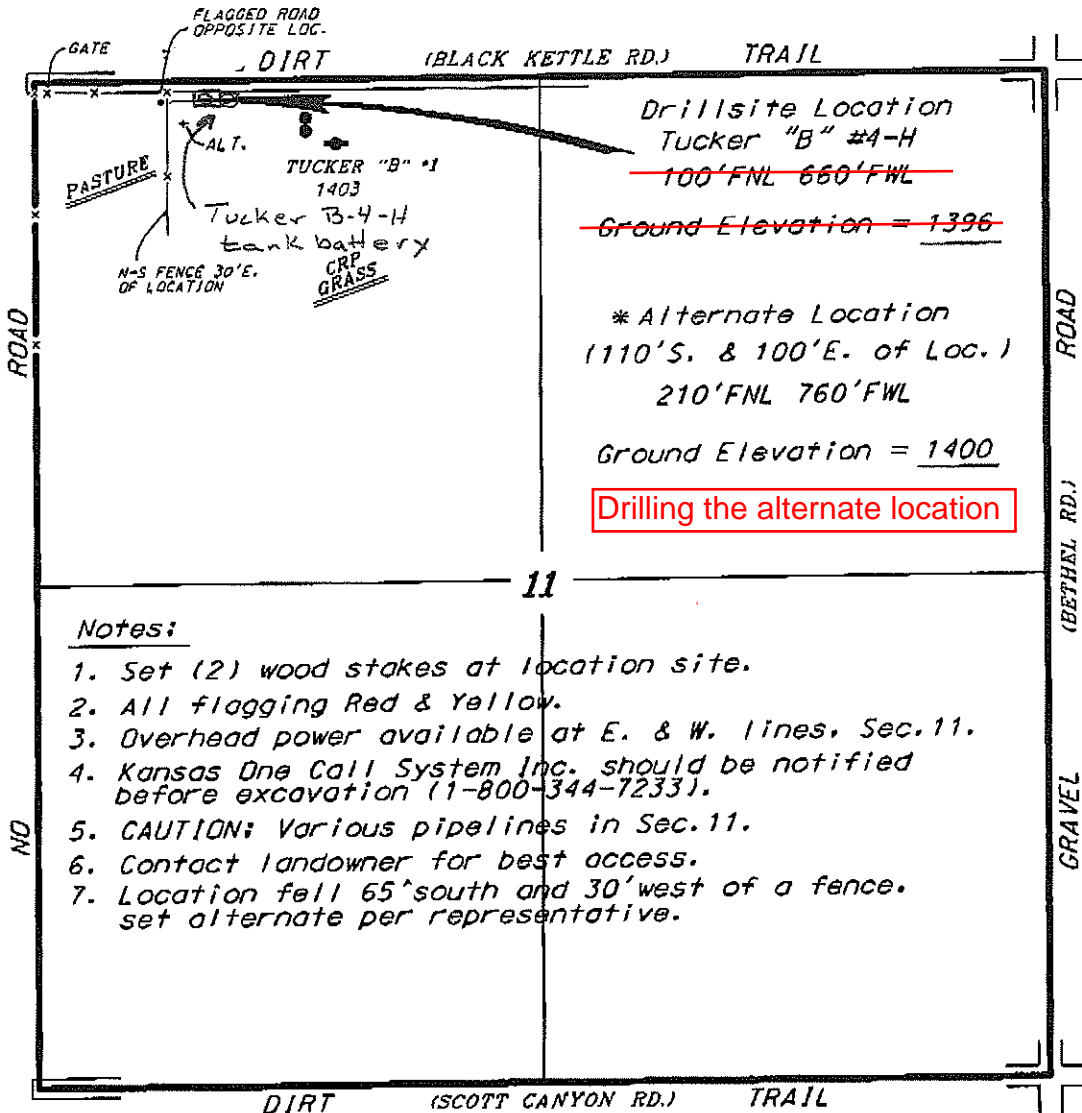 FLAGGED ROAD
OPPOSITE LOC.
GATE
DIRT (BLACK KETTLE RD.) TRAIL
ALT.
PASTURE
TUCKER "B" #1
1403
Tucker B-4-H
tank battery
CRP
GRASS
N-S FENCE 30'E.
OF LOCATION
Drillsite Location
Tucker "B" #4-H
100'FNL 660'FWL
Ground Elevation = 1396
* Alternate Location
(110'S. & 100'E. of Loc.)
210'FNL 760'FWL
Ground Elevation = 1400
Drilling the alternate location
ROAD
NO
ROAD
(BETHEL RD.)
GRAVEL
11
Notes:
1. Set (2) wood stakes at location site.
2. All flagging Red & Yellow.
3. Overhead power available at E. & W. lines, Sec.11.
4. Kansas One Call System Inc. should be notified
before excavation (1-800-344-7233).
5. CAUTION: Various pipelines in Sec.11.
6. Contact landowner for best access.
7. Location fell 65'south and 30'west of a fence.
set alternate per representative.
DIRT (SCOTT CANYON RD.) TRAIL